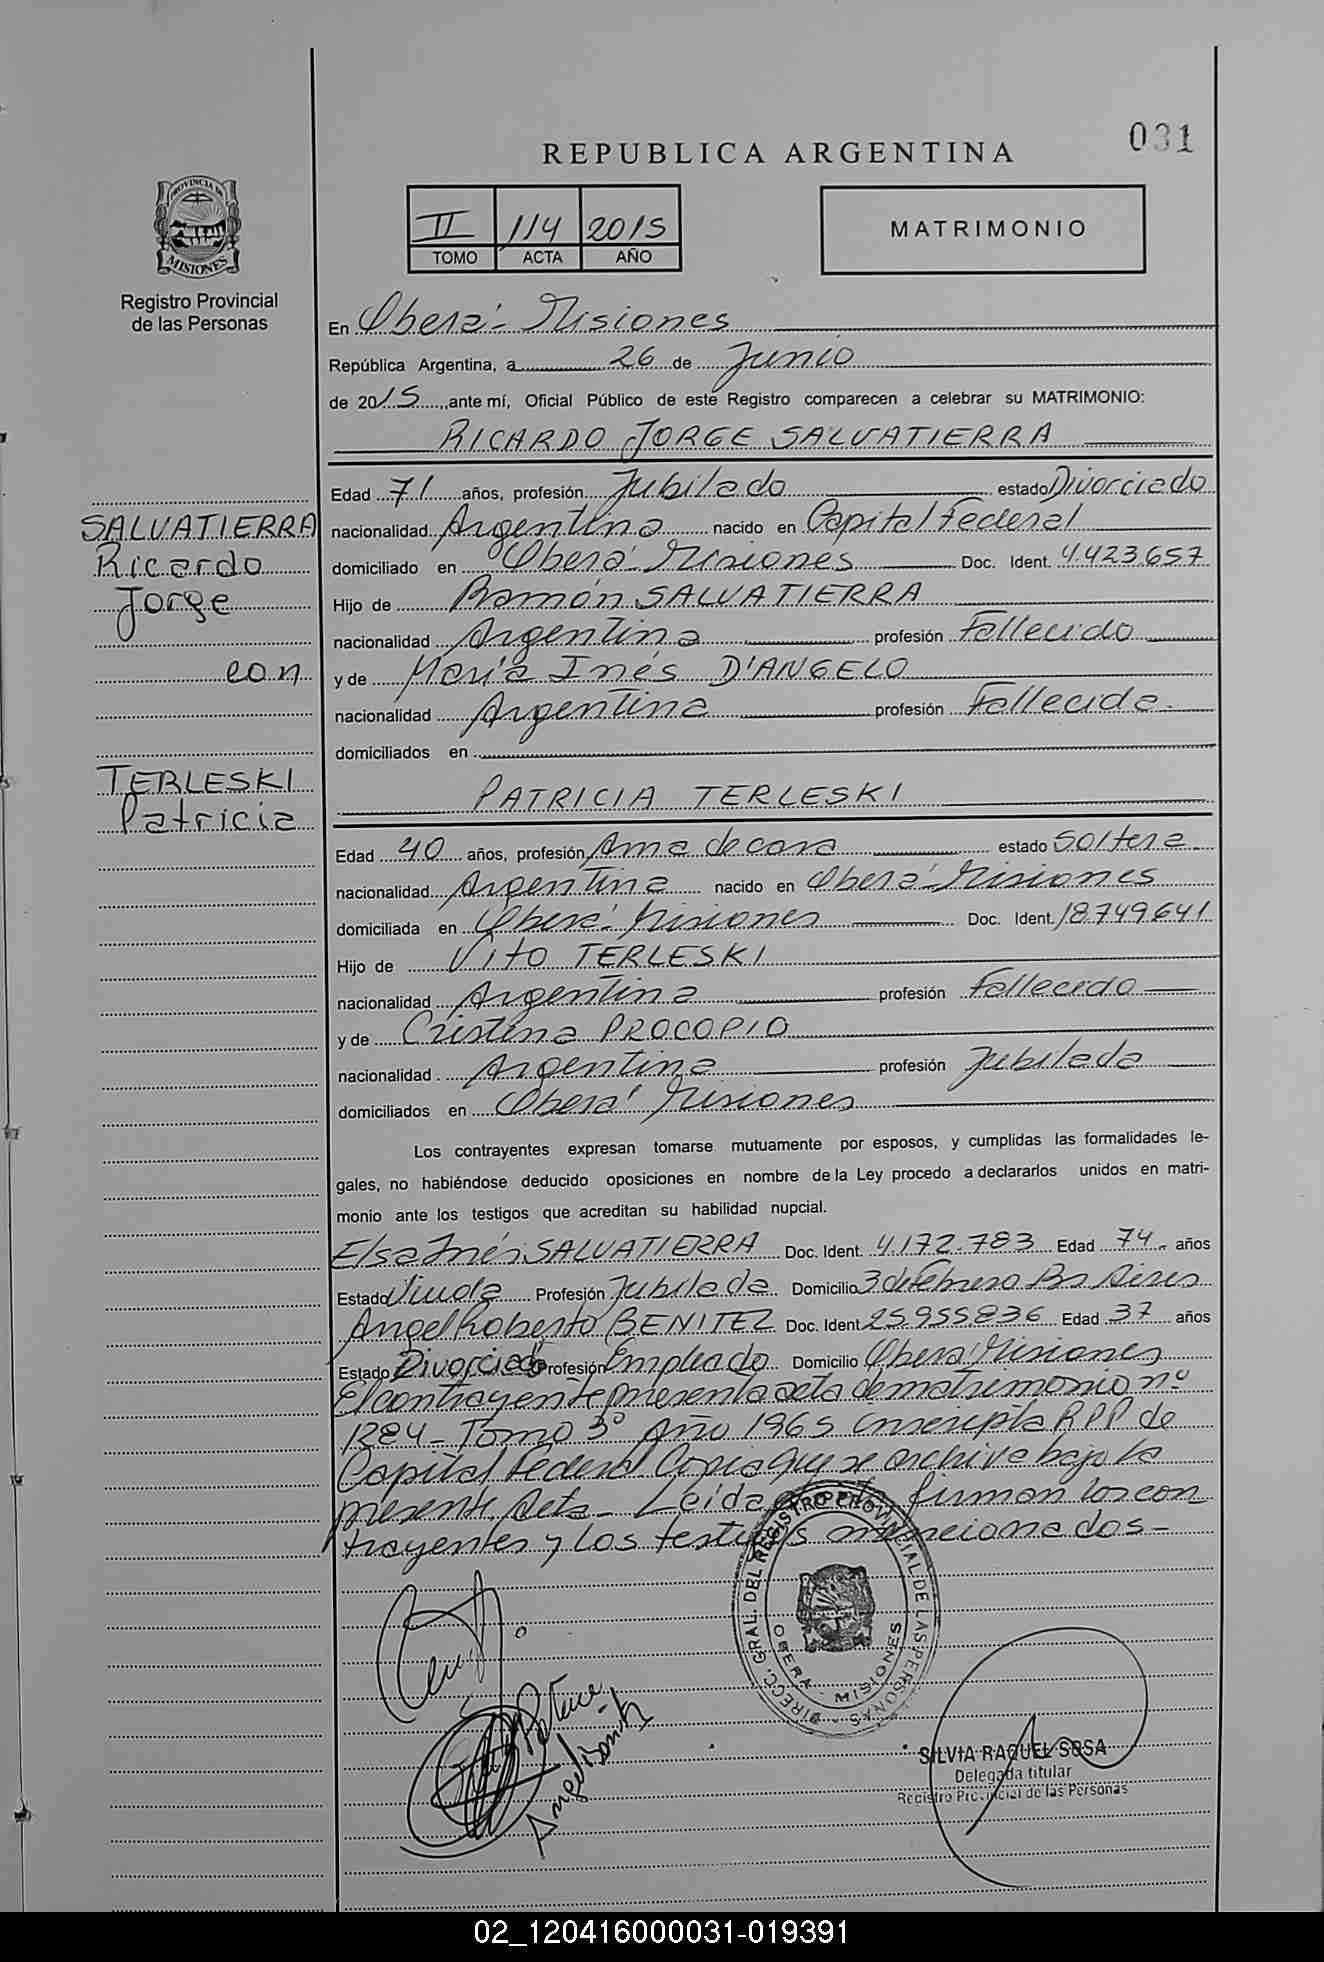 031
REPUBLICA ARGENTINA
PROVINCIA DE
MISIONES
Registro Provincial
de las Personas
II 114 2015
TOMO ACTA AÑO
MATRIMONIO
En Oberá - Misiones
República Argentina, a 26 de Junio
de 2015, ante mí, Oficial Público de este Registro comparecen a celebrar su MATRIMONIO:
RICARDO JORGE SALVATIERRA
SALVATIERRA
Ricardo
Jorge
con
TERLESKI
Patricia
Edad 71 años, profesión Jubilado estado Divorciado
nacionalidad Argentina nacido en Capital Federal
domiciliado en Oberá - Misiones Doc. Ident. 4.423.657
Hijo de Ramón SALVATIERRA
nacionalidad Argentina profesión Fallecido
y de María Inés D'ANGELO
nacionalidad Argentina profesión Fallecida.
domiciliados en
PATRICIA TERLESKI
Edad 40 años, profesión Ama de casa estado Soltera
nacionalidad Argentina nacido en Oberá - Misiones
domiciliada en Oberá - Misiones Doc. Ident. 18.749.641
Hijo de Vito TERLESKI
nacionalidad Argentina profesión Fallecido
y de Cristina PROCOPIO
nacionalidad Argentina profesión Jubilada
domiciliados en Oberá Misiones
Los contrayentes expresan tomarse mutuamente por esposos, y cumplidas las formalidades le-
gales, no habiéndose deducido oposiciones en nombre de la Ley procedo a declararlos unidos en matri-
monio ante los testigos que acreditan su habilidad nupcial.
Elsa Inés SALVATIERRA Doc. Ident. 4.172.783 Edad 74 años
Estado Viuda Profesión Jubilada Domicilio 3 de Febrero Bs Aires
Angel Roberto BENITEZ Doc. Ident 25955836 Edad 37 años
Estado Divorciado Profesión Empleado Domicilio Oberá Misiones
El contrayente presenta acta de matrimonio nº
1284 - Tomo 3º Año 1965 inscripta R.P.P de
Capital Federal Copia que se archiva bajo la
presente Acta - Leida firman los con
trayentes y los testigos mencionados -
DIRECC. GRAL. DEL REGISTRO PROVINCIAL DE LAS PERSONAS
OBERA - MISIONES
Angel Benitez
SILVIA RAQUEL SOSA
Delegada titular
Registro Provincial de las Personas
02_120416000031-019391